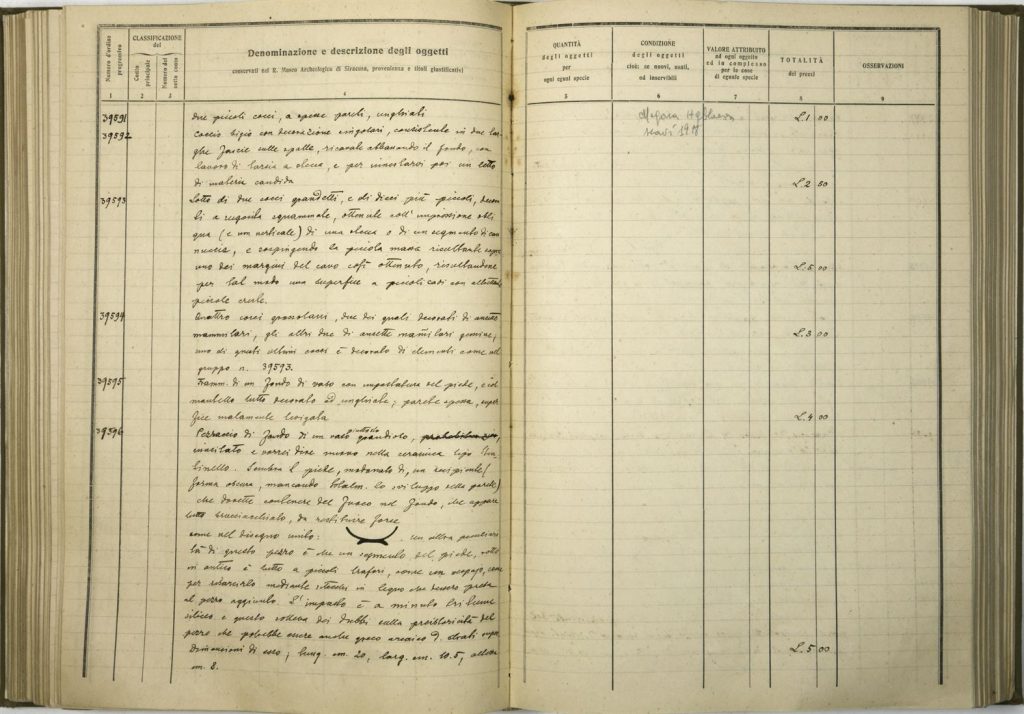 Numero d'ordine progressivo
CLASSIFICAZIONE del
Conto principale
Numero del sotto conto
Denominazione e descrizione degli oggetti
conservati nel R. Museo Archeologico di Siracusa, provenienza e titoli giustificativi
QUANTITÀ degli oggetti per ogni egual specie
CONDIZIONE degli oggetti cioè: se nuovi, usati, od inservibili
VALORE ATTRIBUITO ad ogni oggetto ed in complesso per le cose di eguale specie
TOTALITÀ dei prezzi
OSSERVAZIONI
1 2 3 4 5 6 7 8 9
39591 Due piccoli cocci, a spesse pareti, unghiati L.1 00
Megara Hyblaea
39592 Coccio bigio con decorazione singolare, consistente in due lar
ghe fascie sulle spatte, ricavate abbassando il fondo, con
lavoro di a stecca, e per poi un
di materia candida L.2 50
39593 Lotto di due cocci grandetti, e di dieci più piccoli, decora
ti a squammale, ottenute coll'impressione obli
qua (e non verticale) di una stecca o di un segmento di can
nuccia, e respingendo la piccola massa risultante sopra
uno dei margini del cavo così ottenuto, risultandone
per tal modo una superficie a piccoli cavi con
piccole creste. L.5 00
39594 Quattro cocci grossolani, due dei quali decorati di ansette
mammilari, gli altri due di ansette mam̃ilari gemine;
uno di questi ultimi cocci è decorato di elementi come nel
gruppo n. 39593. L.3 00
39595 Framm. di un fondo di vaso con impostatura del piede, e col
mantello tutto decorato ad unghiate; parete spessa, super
ficie malamente levigata L.4 00
39596 Pezzaccio di fondo di un vaso piuttosto grandioto,
inusitato e vorrei dire nuovo nella ceramica tipo Sten
tinello. Sembra il piede, modanato di, un recipiente (
forma oscura, mancando totalm. lo sviluppo della parete)
che dovette contenere del fuoco nel fondo, che appare
tutto, da restituire forse
come nel disegno unito: . Un'altra peculiari
tà di questo pezzo è che un segmento del piede, rotto
in antico è tutto a piccoli trafori, come
per risarcirlo mediante in legno che dessero presa
al pezzo aggiunto. L'impasto è a minuto tritume
siliceo e questo solleva dei dubbi sulla preistoricità del
pezzo che potrebbe essere anche greco arcaico d. strati super.
Dimensioni di esso; lung. cm. 20, larg. cm. 10.5, altezza
cm. 8. L.5 00